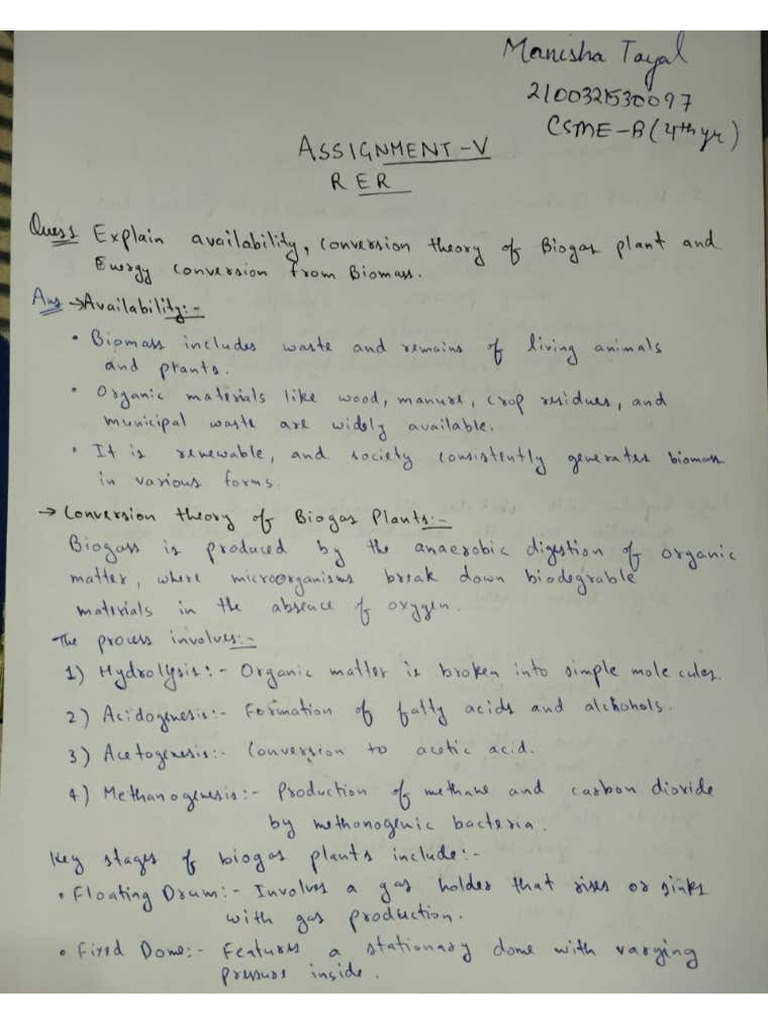 Manisha Tayal
2100321530097
CSME-B (4th yr)
ASSIGNMENT-V
RER
Ques1 Explain availability, conversion theory of Biogas plant and
Energy conversion from Biomass.
Ans → Availability:-
• Biomass includes waste and remains of living animals
and plants.
• Organic materials like wood, manure, crop residues, and
municipal waste are widely available.
• It is renewable, and society consistently generates biomass
in various forms.
→ Conversion theory of Biogas Plants:-
Biogass is produced by the anaerobic digestion of organic
matter, where microorganisms break down biodegrable
materials in the absence of oxygen.
The process involves:-
1) Hydrolysis:- Organic matter is broken into simple molecules.
2) Acidogenesis:- Formation of fatty acids and alchohols.
3) Acetogenesis:- Conversion to acetic acid.
4) Methanogenesis:- Production of methane and carbon dioxide
by methonogenic bacteria.
Key stages of biogas plants include:-
• Floating Drum:- Involves a gas holder that rises or sinks
with gas production.
• Fixed Dome:- Features a stationary dome with varying
pressure inside.